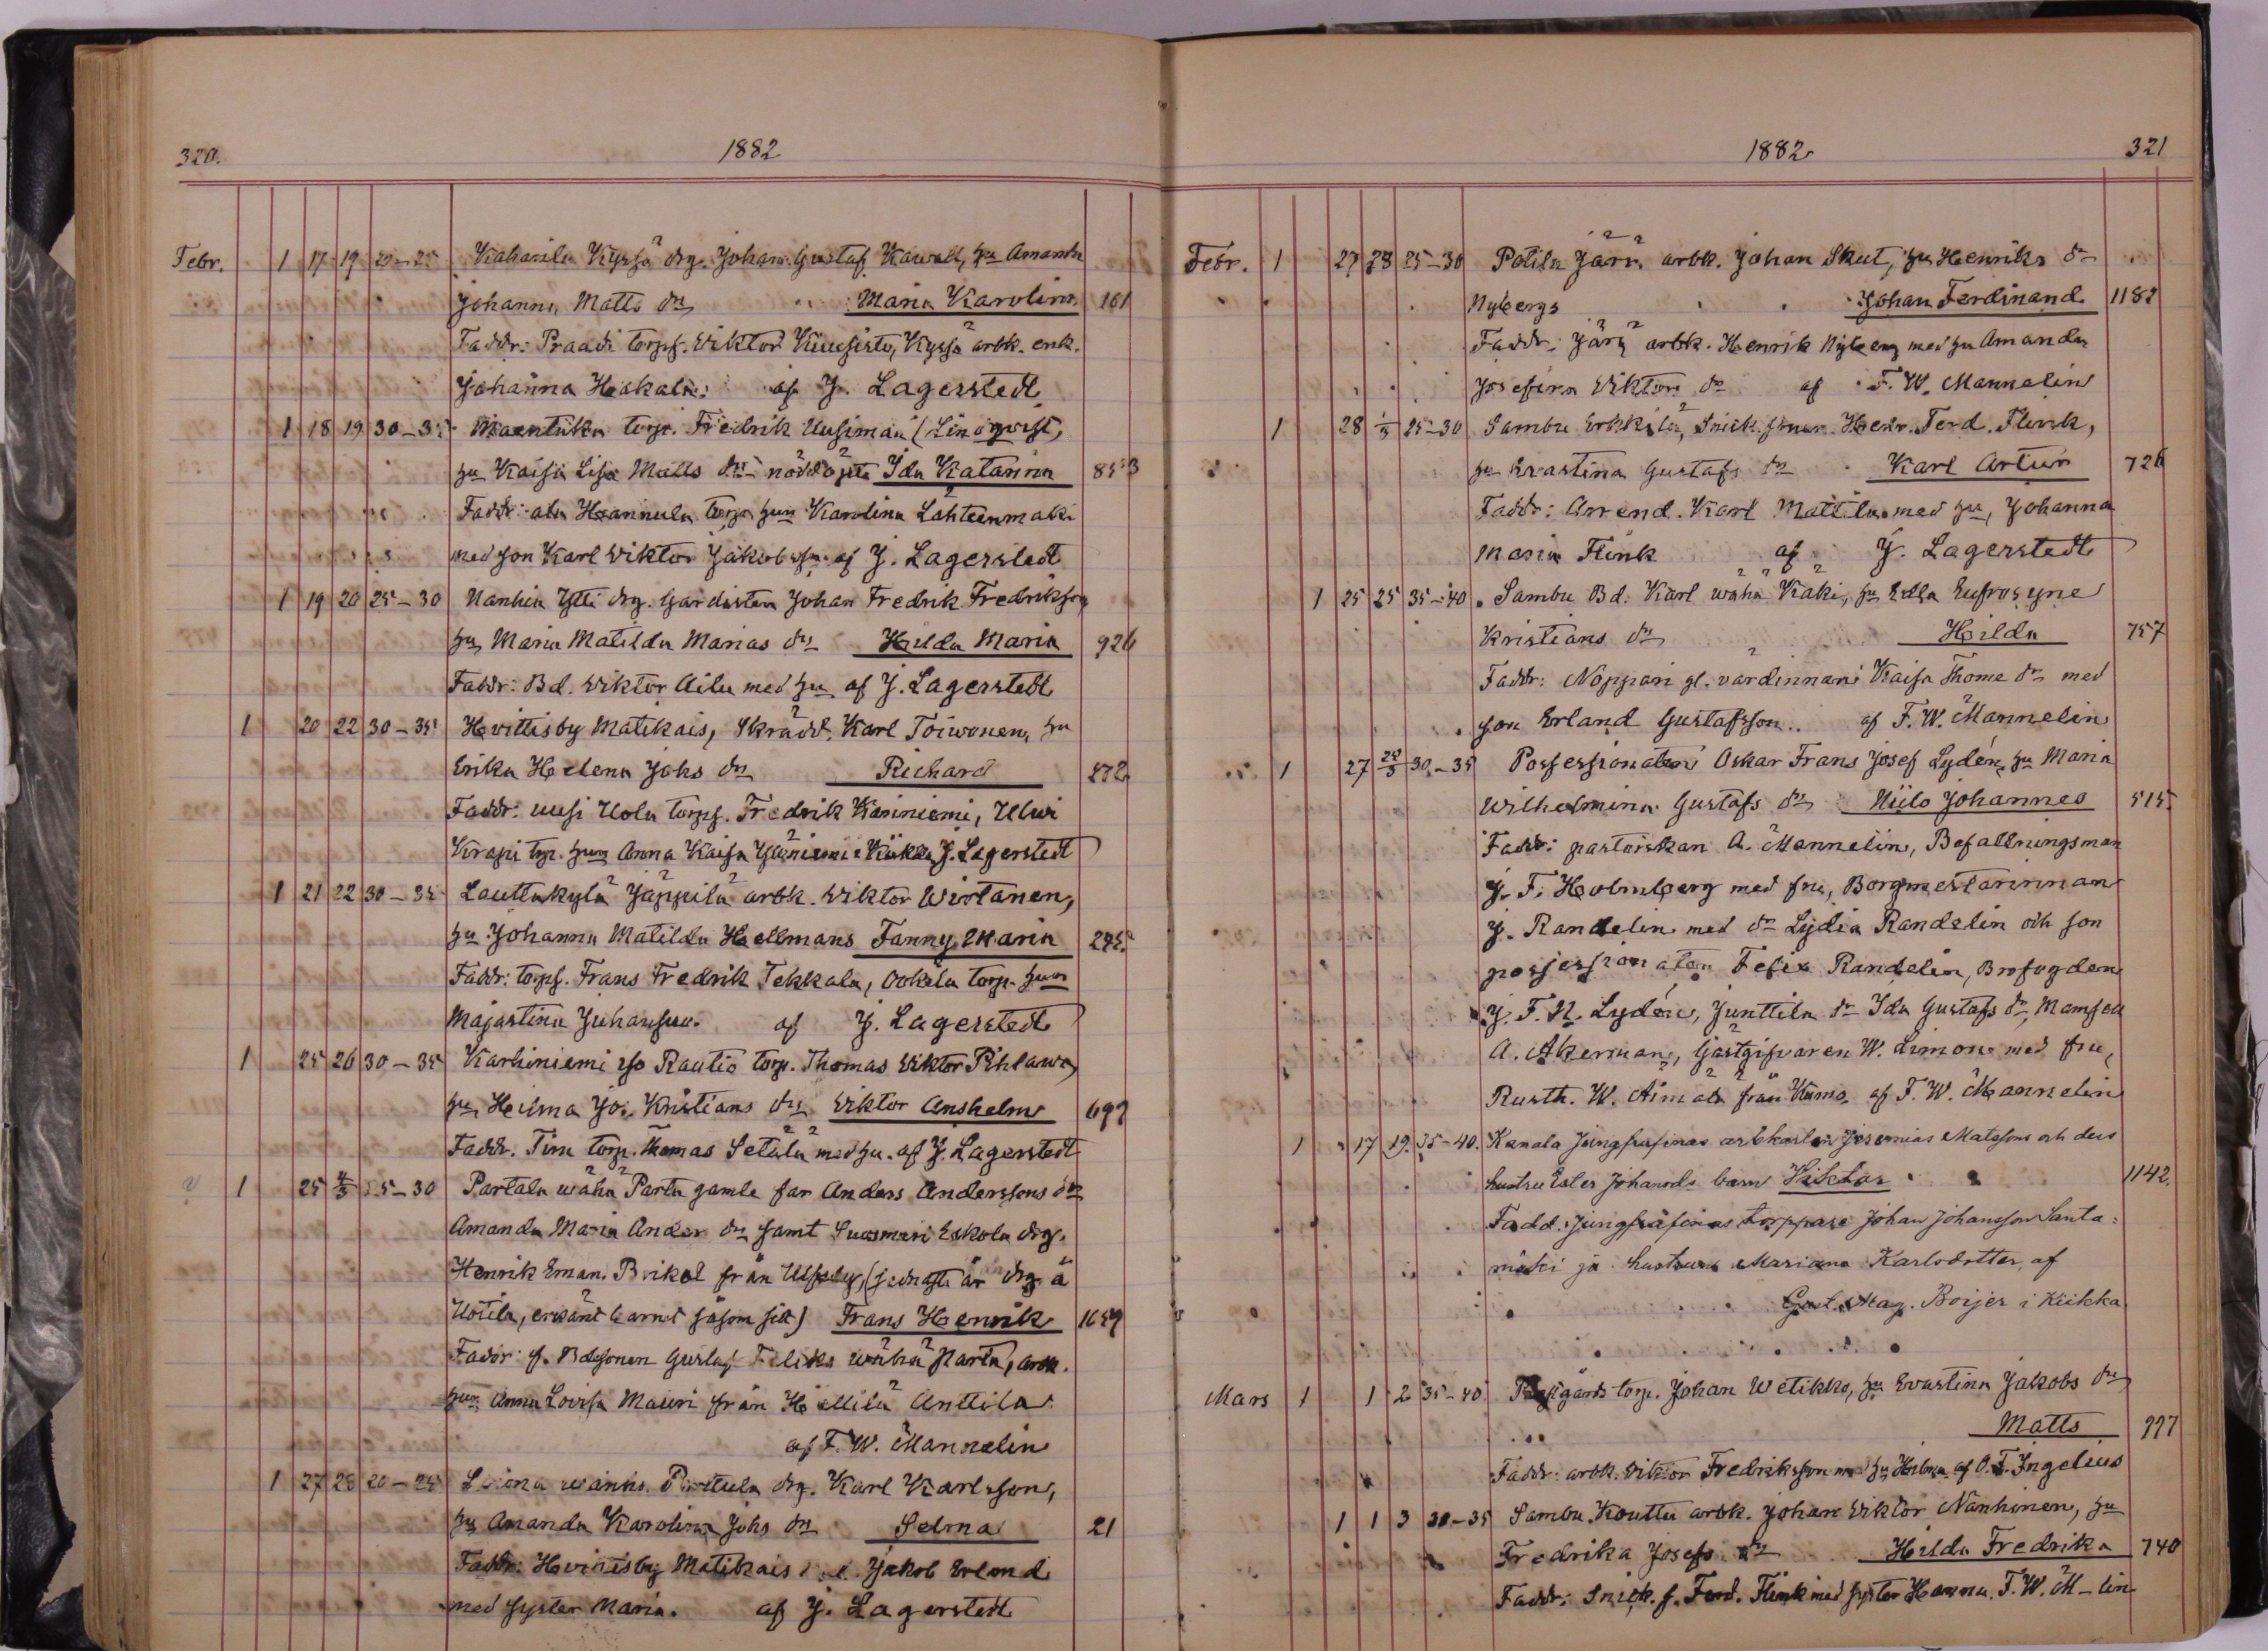 320. 1882
Febr. 1 17 19 20-25 Kaharila Kyssä drg. Johan Gustaf Kawell, hu Amanda
Johanna Matts dr Maria Karolina 161
Faddr: Praadi torp. Viktor Kuusisto, Kyssä arbk. enk.
Johanna Hakala. af J. Lagerstedt
1 18 19 30-35 torp. Fredrik Uusimäki (Lindqvist,
hu Kaisa Lisa Matts dr nöddöpta Ida Katarina 853
Faddr: ala Hannula torp. hun Karolina Lähteenmäki
med son Karl Viktor Jakobssn. af J. Lagerstedt
1 19 20 25-30 Nanhia Ylli drg. Gardisten Johan Fredrik Fredriksson
hu Maria Matilda Marias dr Hilda Maria 926
Faddr: Bd. Viktor Aila med hu af J. Lagerstedt
1 20 22 30-35 Hvittisby Matikais, Skrädd. Karl Toiwonen, hu
Erika Helena Johs dr Richard 572
Faddr: uusi Uola torp. Fredrik Kariniemi, Ulwi
Krapi trp. hun Anna Kaisa J. Lagerstedt
1 21 22 30-35 Lauttakylä Jäppilä arbk. Viktor Wirtanen,
hu Johanna Matilda Hellmans Fanny Maria 245.
Faddr: torp. Frans Fredrik Tekkala, torp. hun
Majastina Juhansuu. af J. Lagerstedt
1 25 26 30-35 Karhiniemi iso Rautio torp. Thomas Viktor Pihlawa,
hu Heilma Jos. Kristians dr Viktor Anshelm 697
Faddr. torp. Thomas Setälä med hu. af J. Lagerstedt
1 25 4/3 25-30 Partala wähä Partu gamle far Anders Anderssons dr
Amanda Maria Anders dr samt Suosmeri Eskola drg.
Henrik Eman. från Ulfsby, (sednaste år drg. å
Uotila, erkänt barnet såsom sitt) Frans Henrik 1659
Faddr: f. Bdessonen Gustaf Feliks wähä Partu, arbk.
hun Anna Lovisa Mauri från Hällilä Anttila
af F. W. Mannelin
1 27 28 20-25 drg. Karl Karlsson,
hu Amanda Karolina Johs dr Selma 21
Faddr: Hvittisby Matikais Jakob Erland
med syster Maria. af J. Lagerstedt
1882 321
Febr. 1 27 28 25-30 Potila Järv. arbk. Johan Skut, hu Henriks dr
Nybergs Johan Ferdinand 1182
Faddr: arbk. Henrik Nyberg med hu Amanda
Josefina Viktors dr af F. W. Mannelin
1 28 1/3 25-30 Sambu Erkkilä, Henr. Ferd. Flink,
hu Evastina Gustafs dr Karl Artur 726
Faddr: Arrend. Karl Mattila med hu, Johanna
Maria Flink af J. Lagerstedt
1 25 25 35-40 Sambu Bd. Karl wähä Käki, hu Edla Eufrosyne
Kristians dr Hilda 757
Faddr: Noppari gl. värdinnan Kaisa Thome dr med
son Erland Gustafsson. af F. W. Mannelin
1 27 22/3 30-35 Possessionaten Oskar Frans Josef Lydén, hu Maria
Wilhelmina Gustafs dr Niilo Johannes 515
Faddr: pastorskan A. Mannelin, Befallningsman
J. F. Holmberg med fru, Borgmestarinnan
J. Randelin med dr Lydia Randelin och son
possessionaten Felix Randelin, Brofogden
J. F. N. Lydén, Junttila dr Ida Gustafs dr, Mamsell
A. Åkerman, Gästgifvaren W. Limon med fru,
Rusth. W. Äimälä från Kumo. af F. W. Mannelin
1 17 19. 35-40. Kanala Jungfrufinas arbkarlen Jeremias Matssons och dess
hustru Ester Johansds barn Viktor 1142.
Fadd. Jungfrufinas torppare Johan Johansson Santa-
mäki ja hustrun Mariana Karlsdotter, af
Gust. Mag. Boijer i Kiikka
Mars 1 1 2 35-40 torp. Johan Wetikko, hu Evastina Jakobs dr
Matts 997
Faddr: arbk. Viktor Fredriksson med hu Hilma af O. F. Ingelius
1 1 3 30-35 Sambu Kouttu arbk. Johan Viktor Nanhinen, hu
Fredrika Josefs dr Hilda Fredrika 740
Faddr: Snick. f. Ferd. Flink med syster Hanna. F. W. M-lin